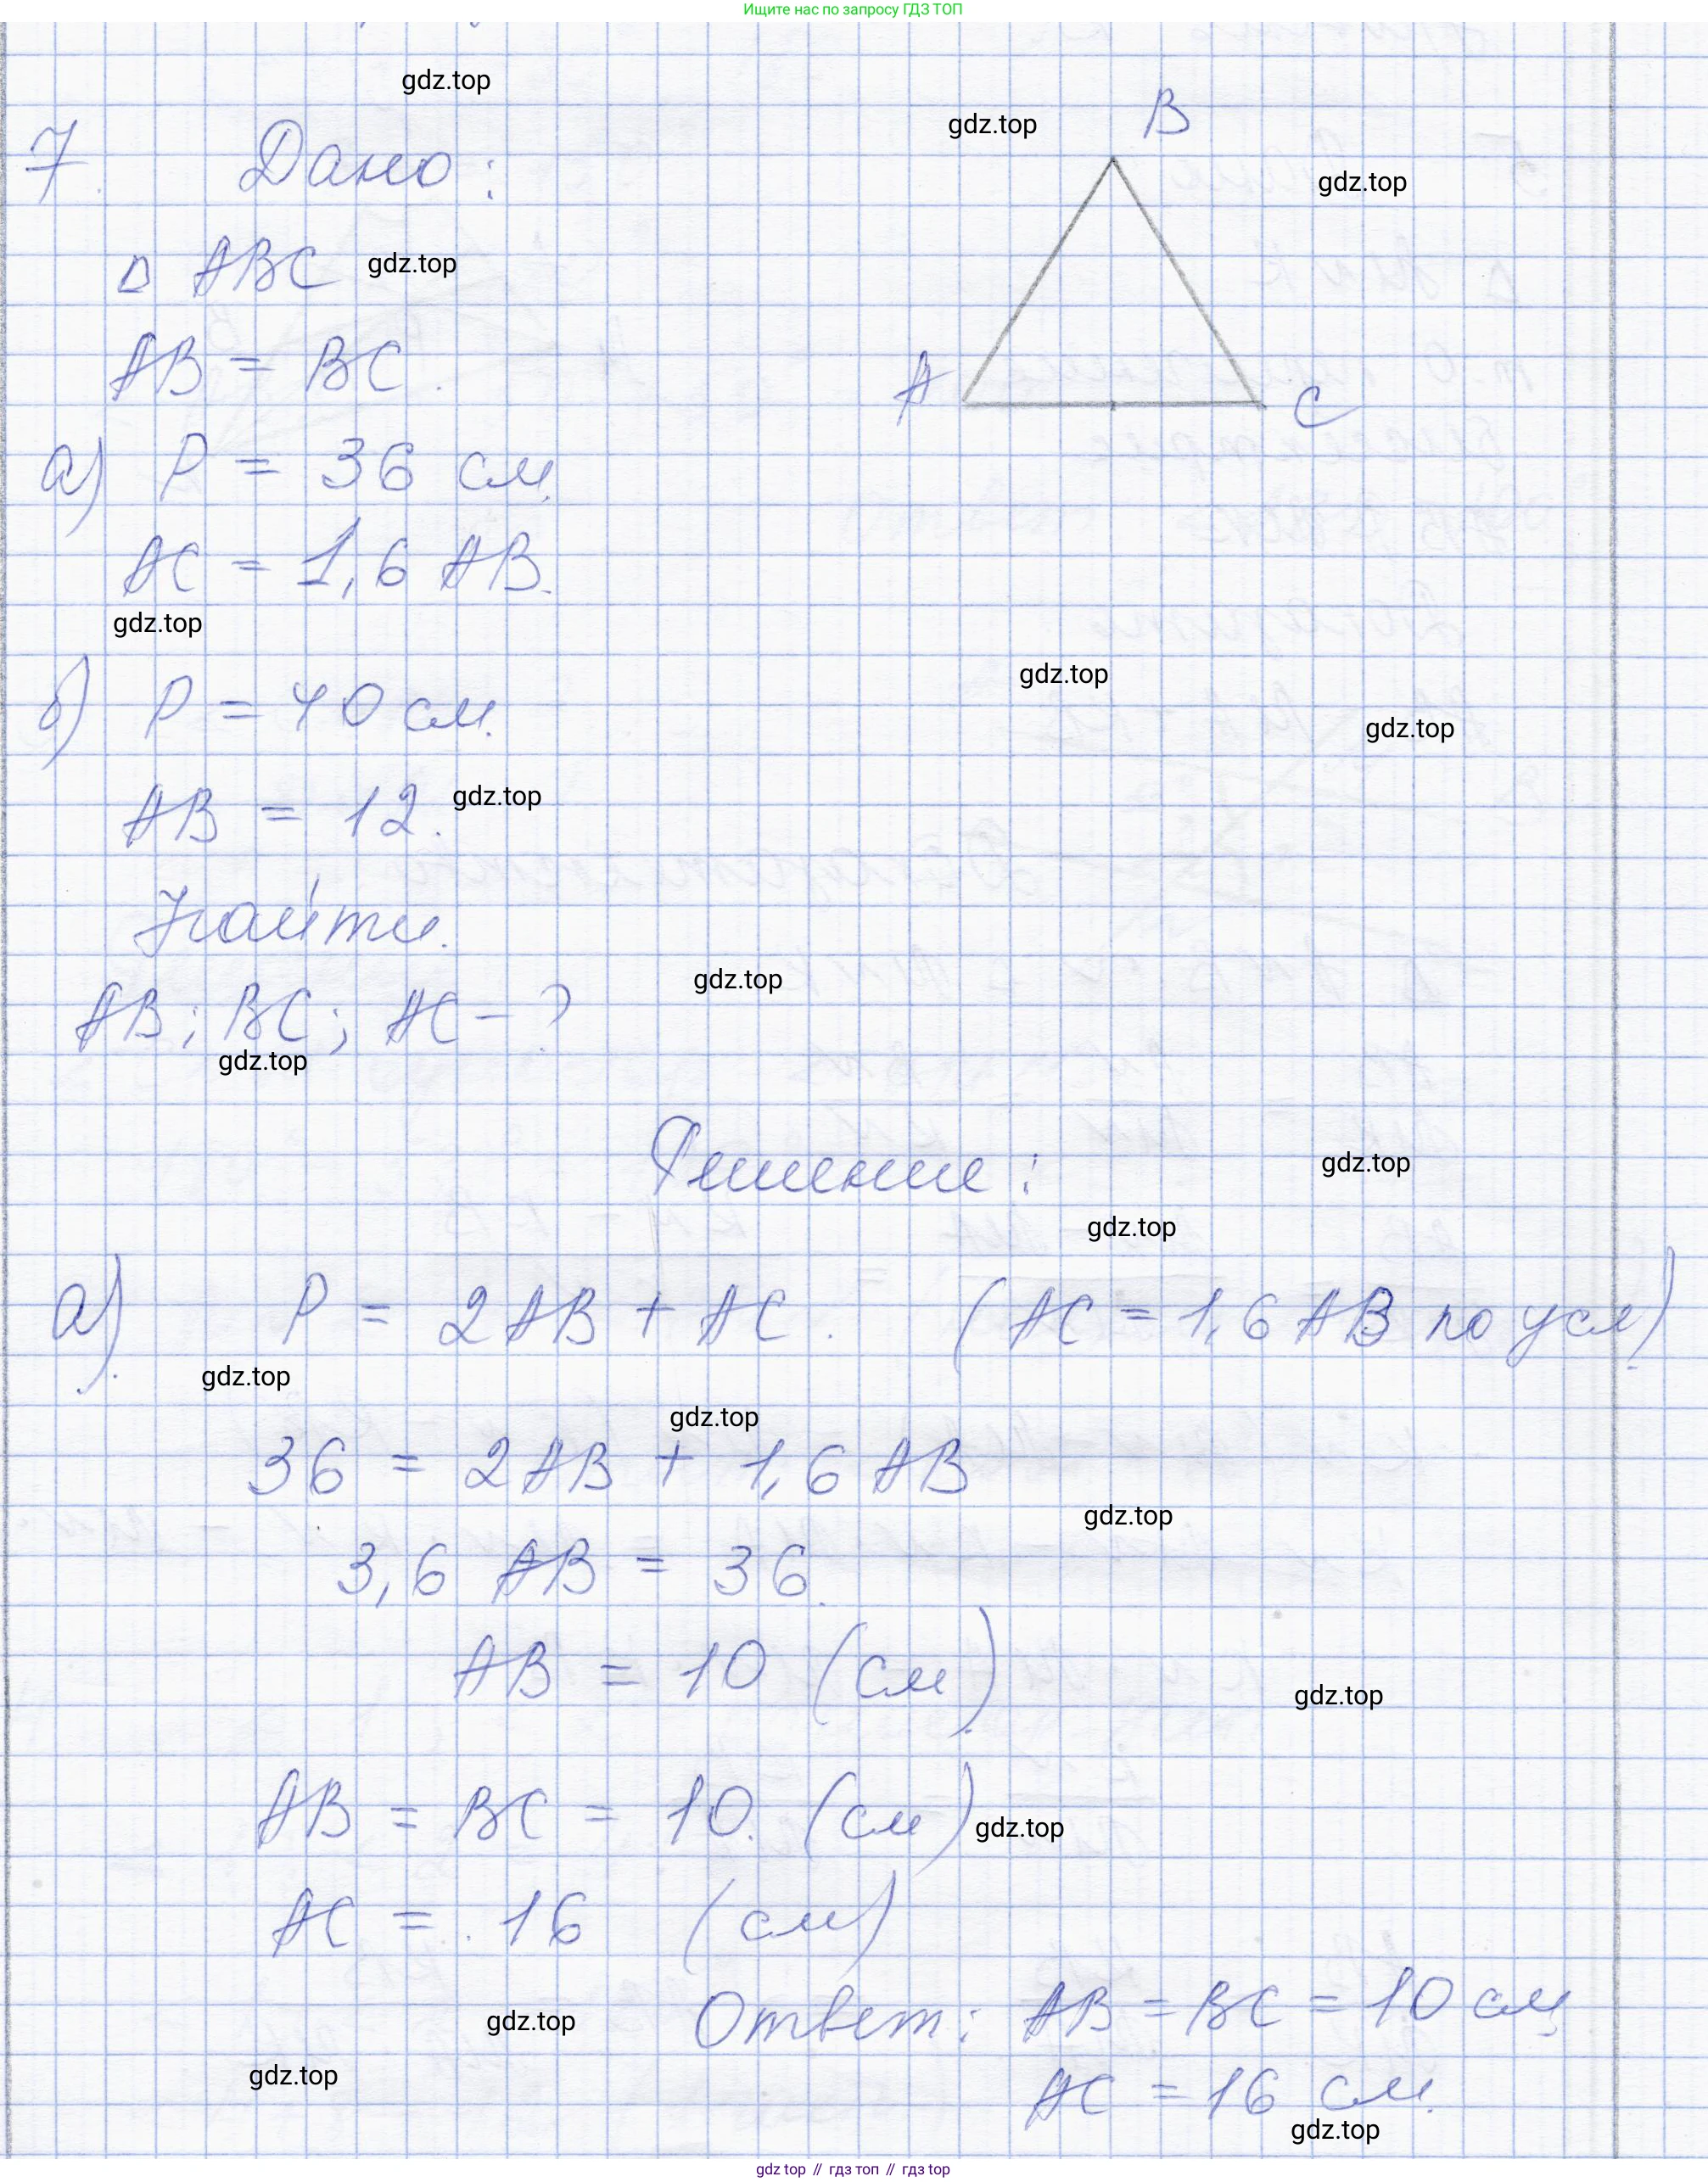 Ищите нас по запросу ГДЗ ТОП
gdz.top
7. Дано:
B
gdz.top
gdz.top
Δ ABC
gdz.top
AB = BC.
A
C
а) P = 36 см
AC = 1,6 AB.
gdz.top
gdz.top
б) P = 40 см.
gdz.top
AB = 12.
gdz.top
Найти.
gdz.top
AB; BC; AC - ?
gdz.top
Решение:
gdz.top
gdz.top
а). P = 2AB + AC. (AC = 1,6 AB по усл)
gdz.top
gdz.top
36 = 2AB + 1,6 AB
gdz.top
3,6 AB = 36.
AB = 10 (см).
gdz.top
AB = BC = 10. (см)
gdz.top
AC = 16 (см)
Ответ: AB = BC = 10 см,
gdz.top
gdz.top
AC = 16 см.
gdz.top
gdz top // гдз топ // гдз top